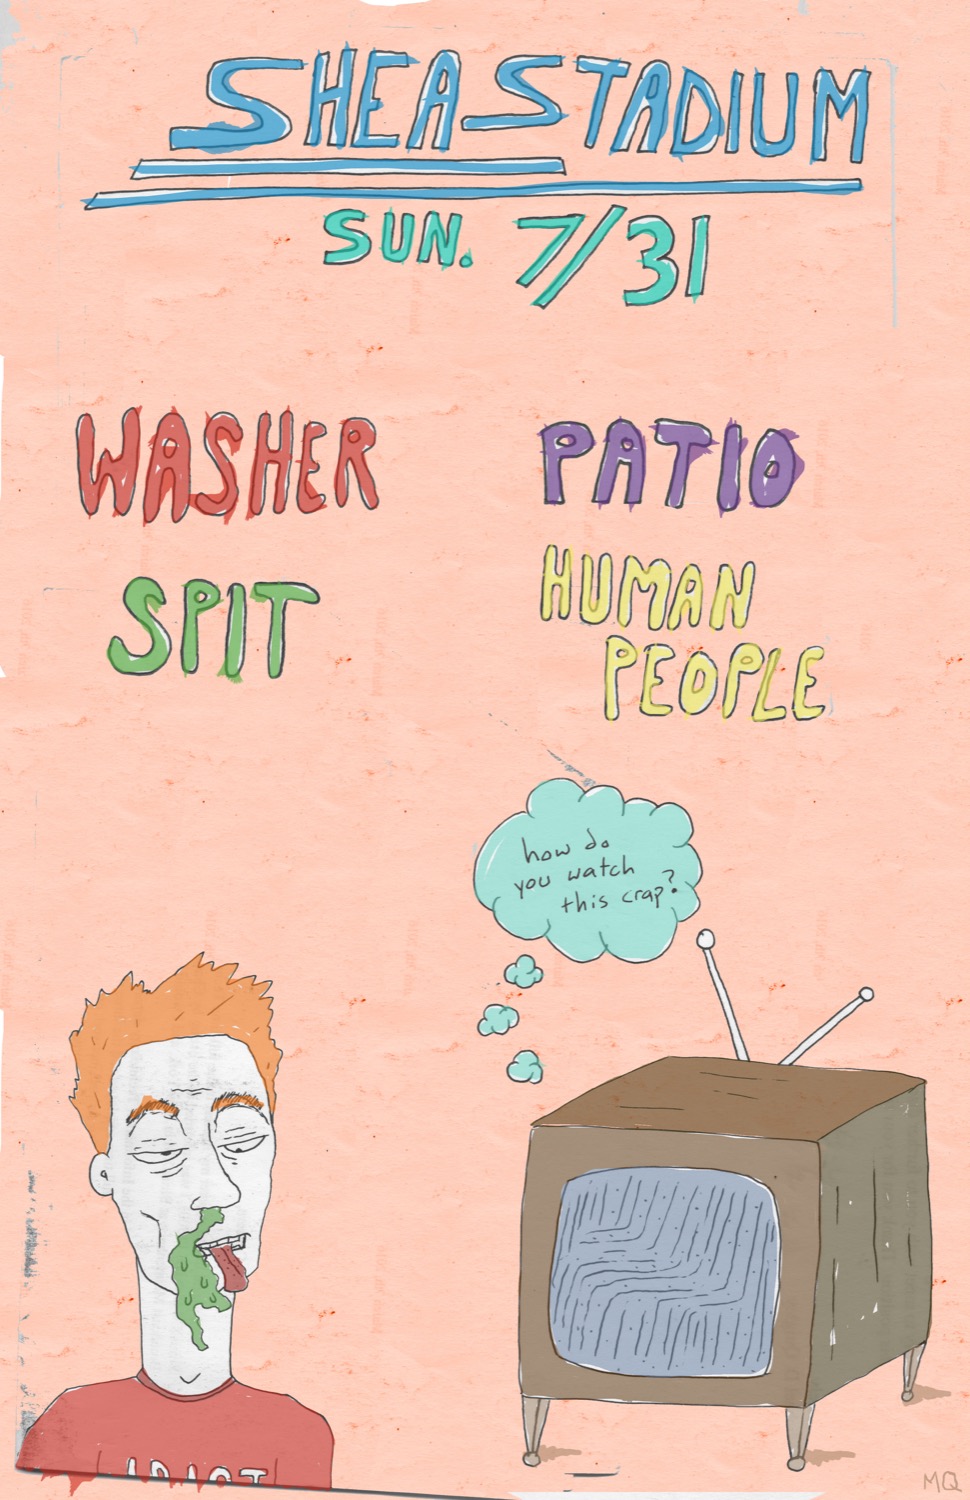 SHEA STADIUM
SUN. 7/31
WASHER
PATIO
SPIT
HUMAN
PEOPLE
how do
you watch
this crap?
IDIOT
MQ